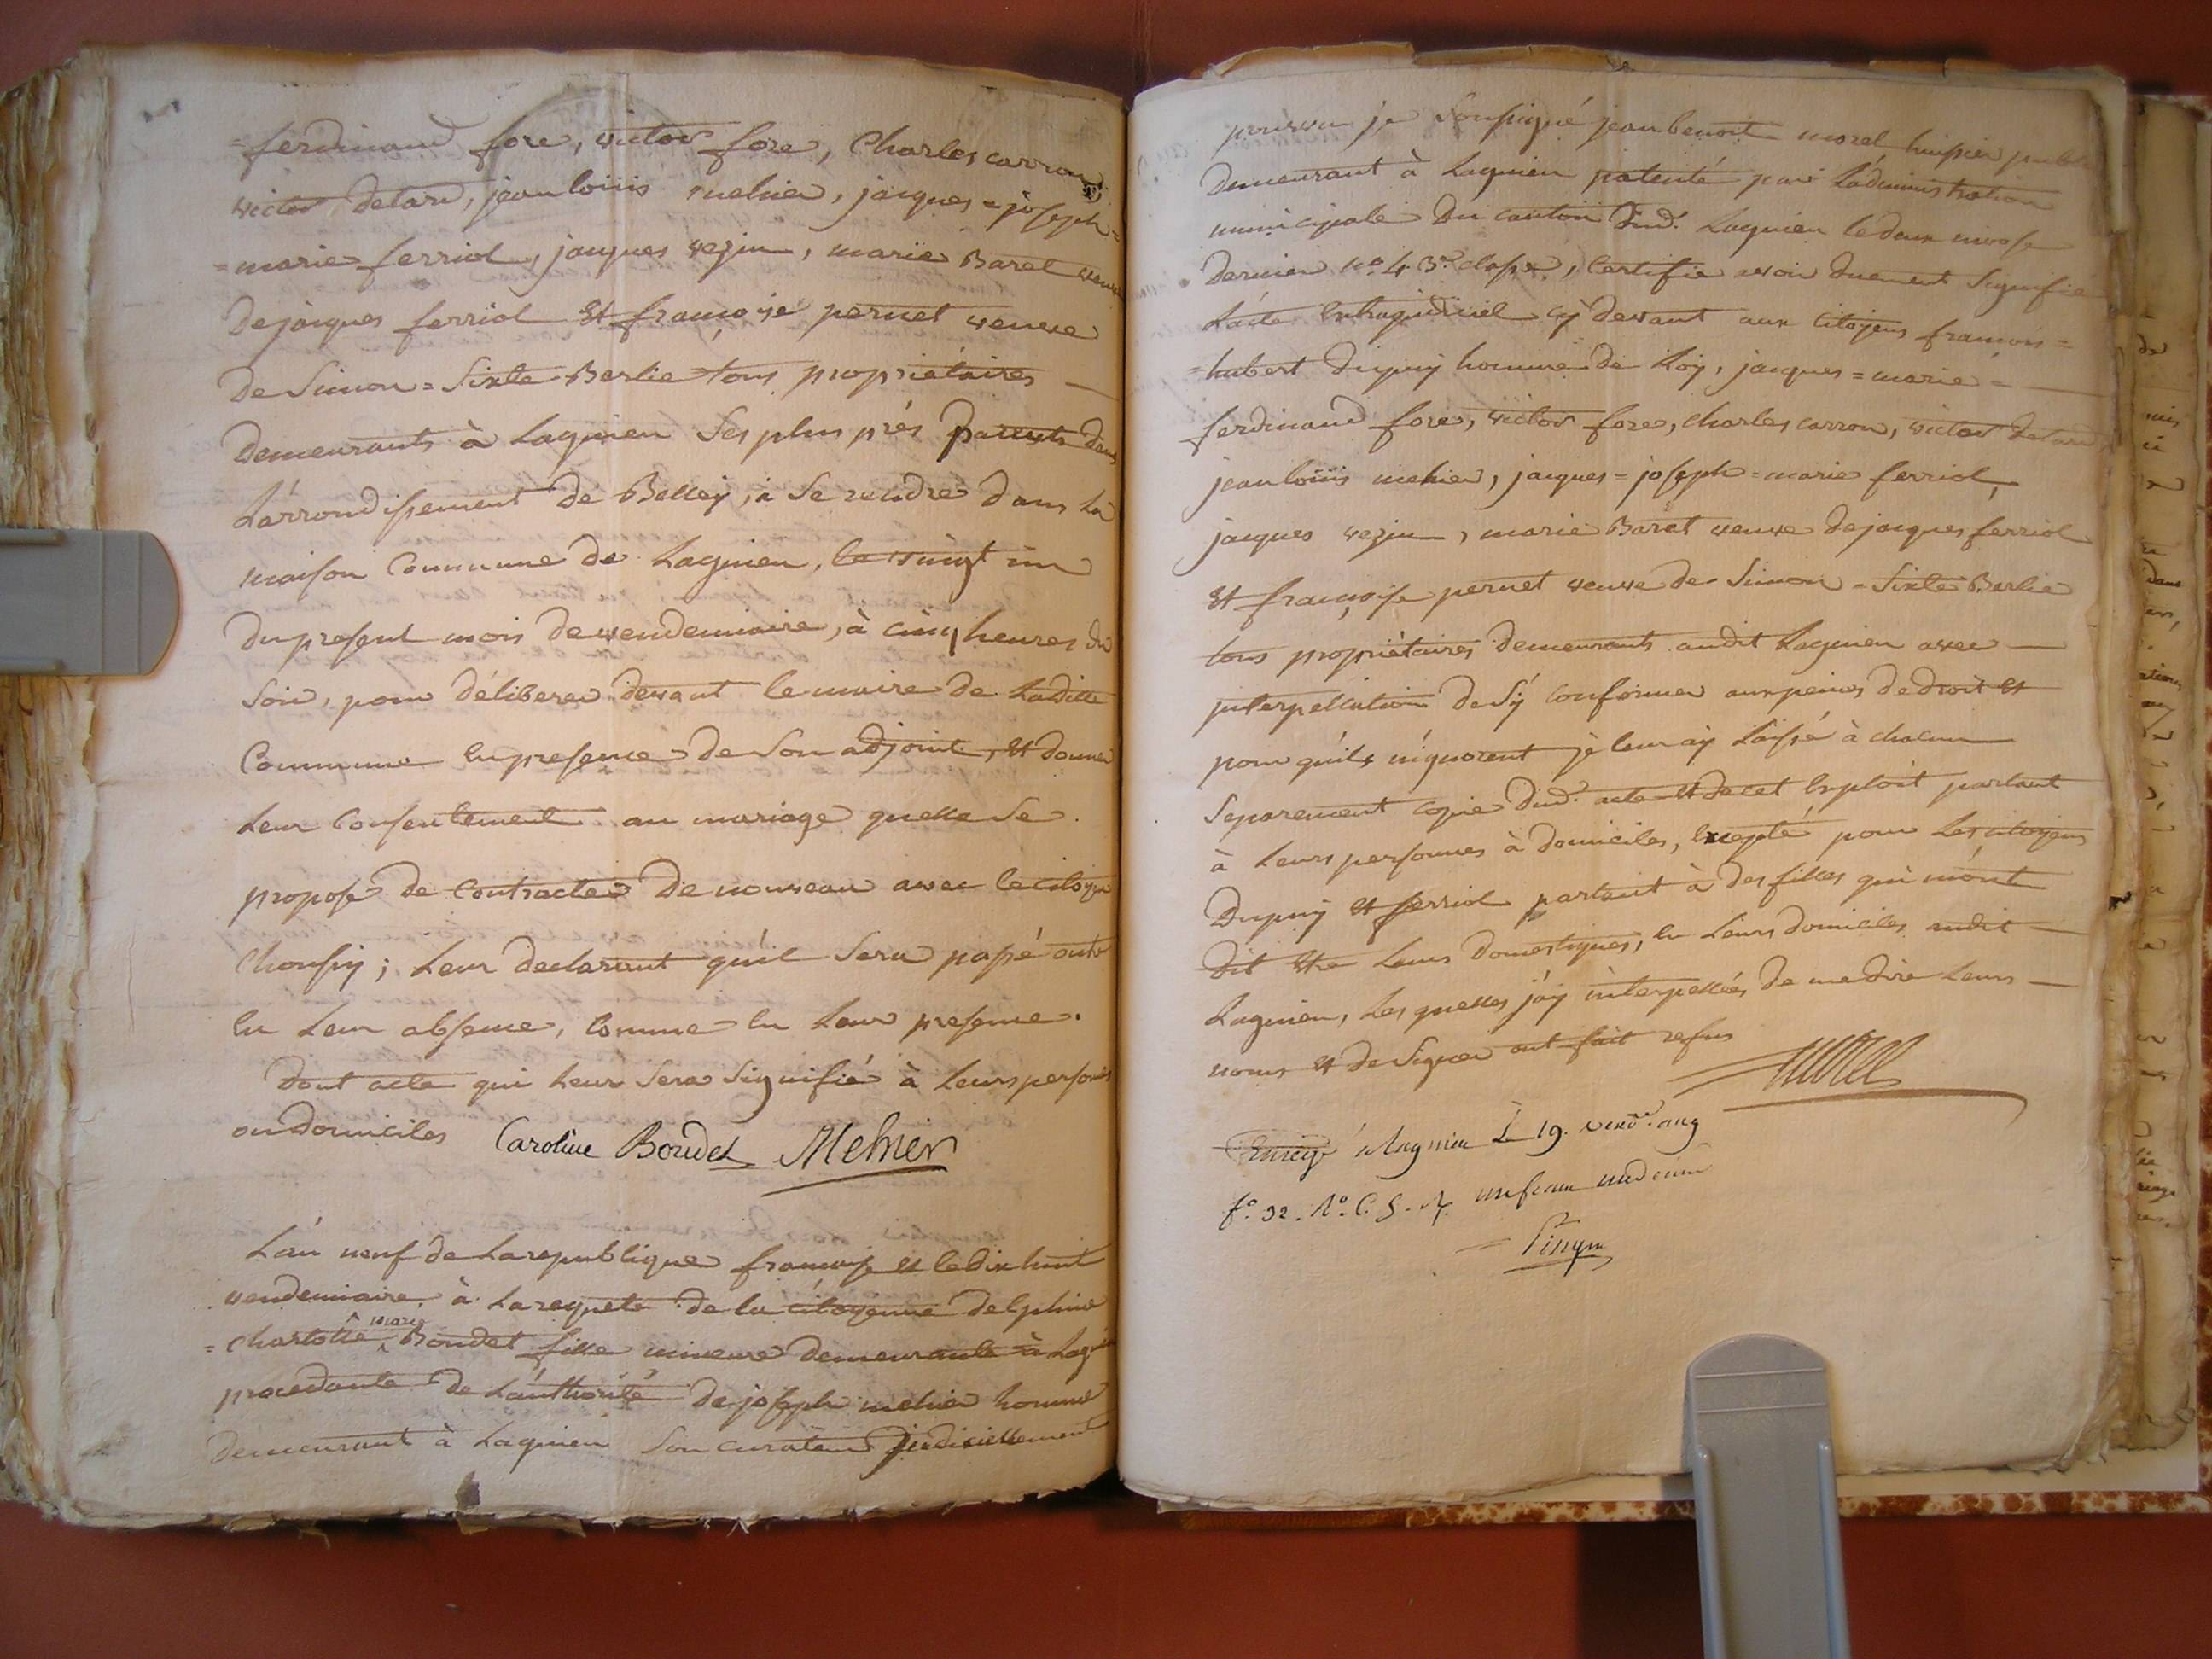 =ferdinand fore, victor fore, Charles carron
victor detard, jean loüis mehier, jacques=joseph=
=marie ferriol, jacques vezin, marie Baret veuve
de jacques ferriol Et françoise pernet veuve
de Simon=Sixte Berlie tous propriétaires
demeurants à Lagnieu Ses plus près parents dans
L'arrondissement de Belley, à Se rendre dans la
maison Commune de Lagnieu, le vingt un
du present mois de vendemiaire, à cinq heures du
Soir, pour déliberer devant le maire de Laditte
Commune En presence de Son adjoint, Et donner
Leur Consentement au mariage quelle Se
propose de Contracter de nouveau avec le citoyen
Chousy; Leur declarant qu'il Sera passé outre
En Leur absence, Comme En Leur presence.
Dont acte qui Leur Sera Signifié à Leurs personnes
ou domiciles Caroline Boudet Mehier
L'an neuf de La republique françoise et le dix huit
vendemiaire, à La requete de la citoyenne delphine
=charlotte marie Boudet fille mineure demeurante à Lagnieu
procedante de L'authorité de joseph mehier homme
demeurant à Lagnieu Son curateur judiciellement
pourvu je Soussigné jean benoit morel huissier public
Demeurant à Lagnieu patenté par L'administration
municipale du canton dud. Lagnieu le deux nivose
Dernier no. 4. 3e. classe, Certifie avoir duement Signifié
L'acte Extrajudiciel cÿ devant aux Citoyens francois=
=hubert dupuy homme de Loÿ, jacques=marie=
ferdinand fore, victor fore, charles carron, victor detard
jean loüis mehier, jacques=joseph=marie ferriol,
jacques vezin, marie Baret veuve de jacques ferriol
Et françoise pernet veuve de Simon=Sixte Berlie
tous propriétaires demeurants audit Lagnieu avec
interpellation de S'ÿ Conformer aux peines de droit Et
pour qu'ils n'ignorent je leur aÿ Laissé à chacun
Separement copie dud. acte Et de cet Exploit parlant
à Leurs personnes à domiciles, Excepté pour Les citoyens
Dupuy Et ferriol parlant à des filles qui m'ont
dit Etre Leurs domestiques, En Leurs domiciles audit
Lagnieu, Les quelles j'aÿ interpellées de me dire Leurs
noms Et de Signer ont fait refus Morel
à Lagnieu Le 19. vend.re an 9
f.o 32. R.o C. 5. R. un franc